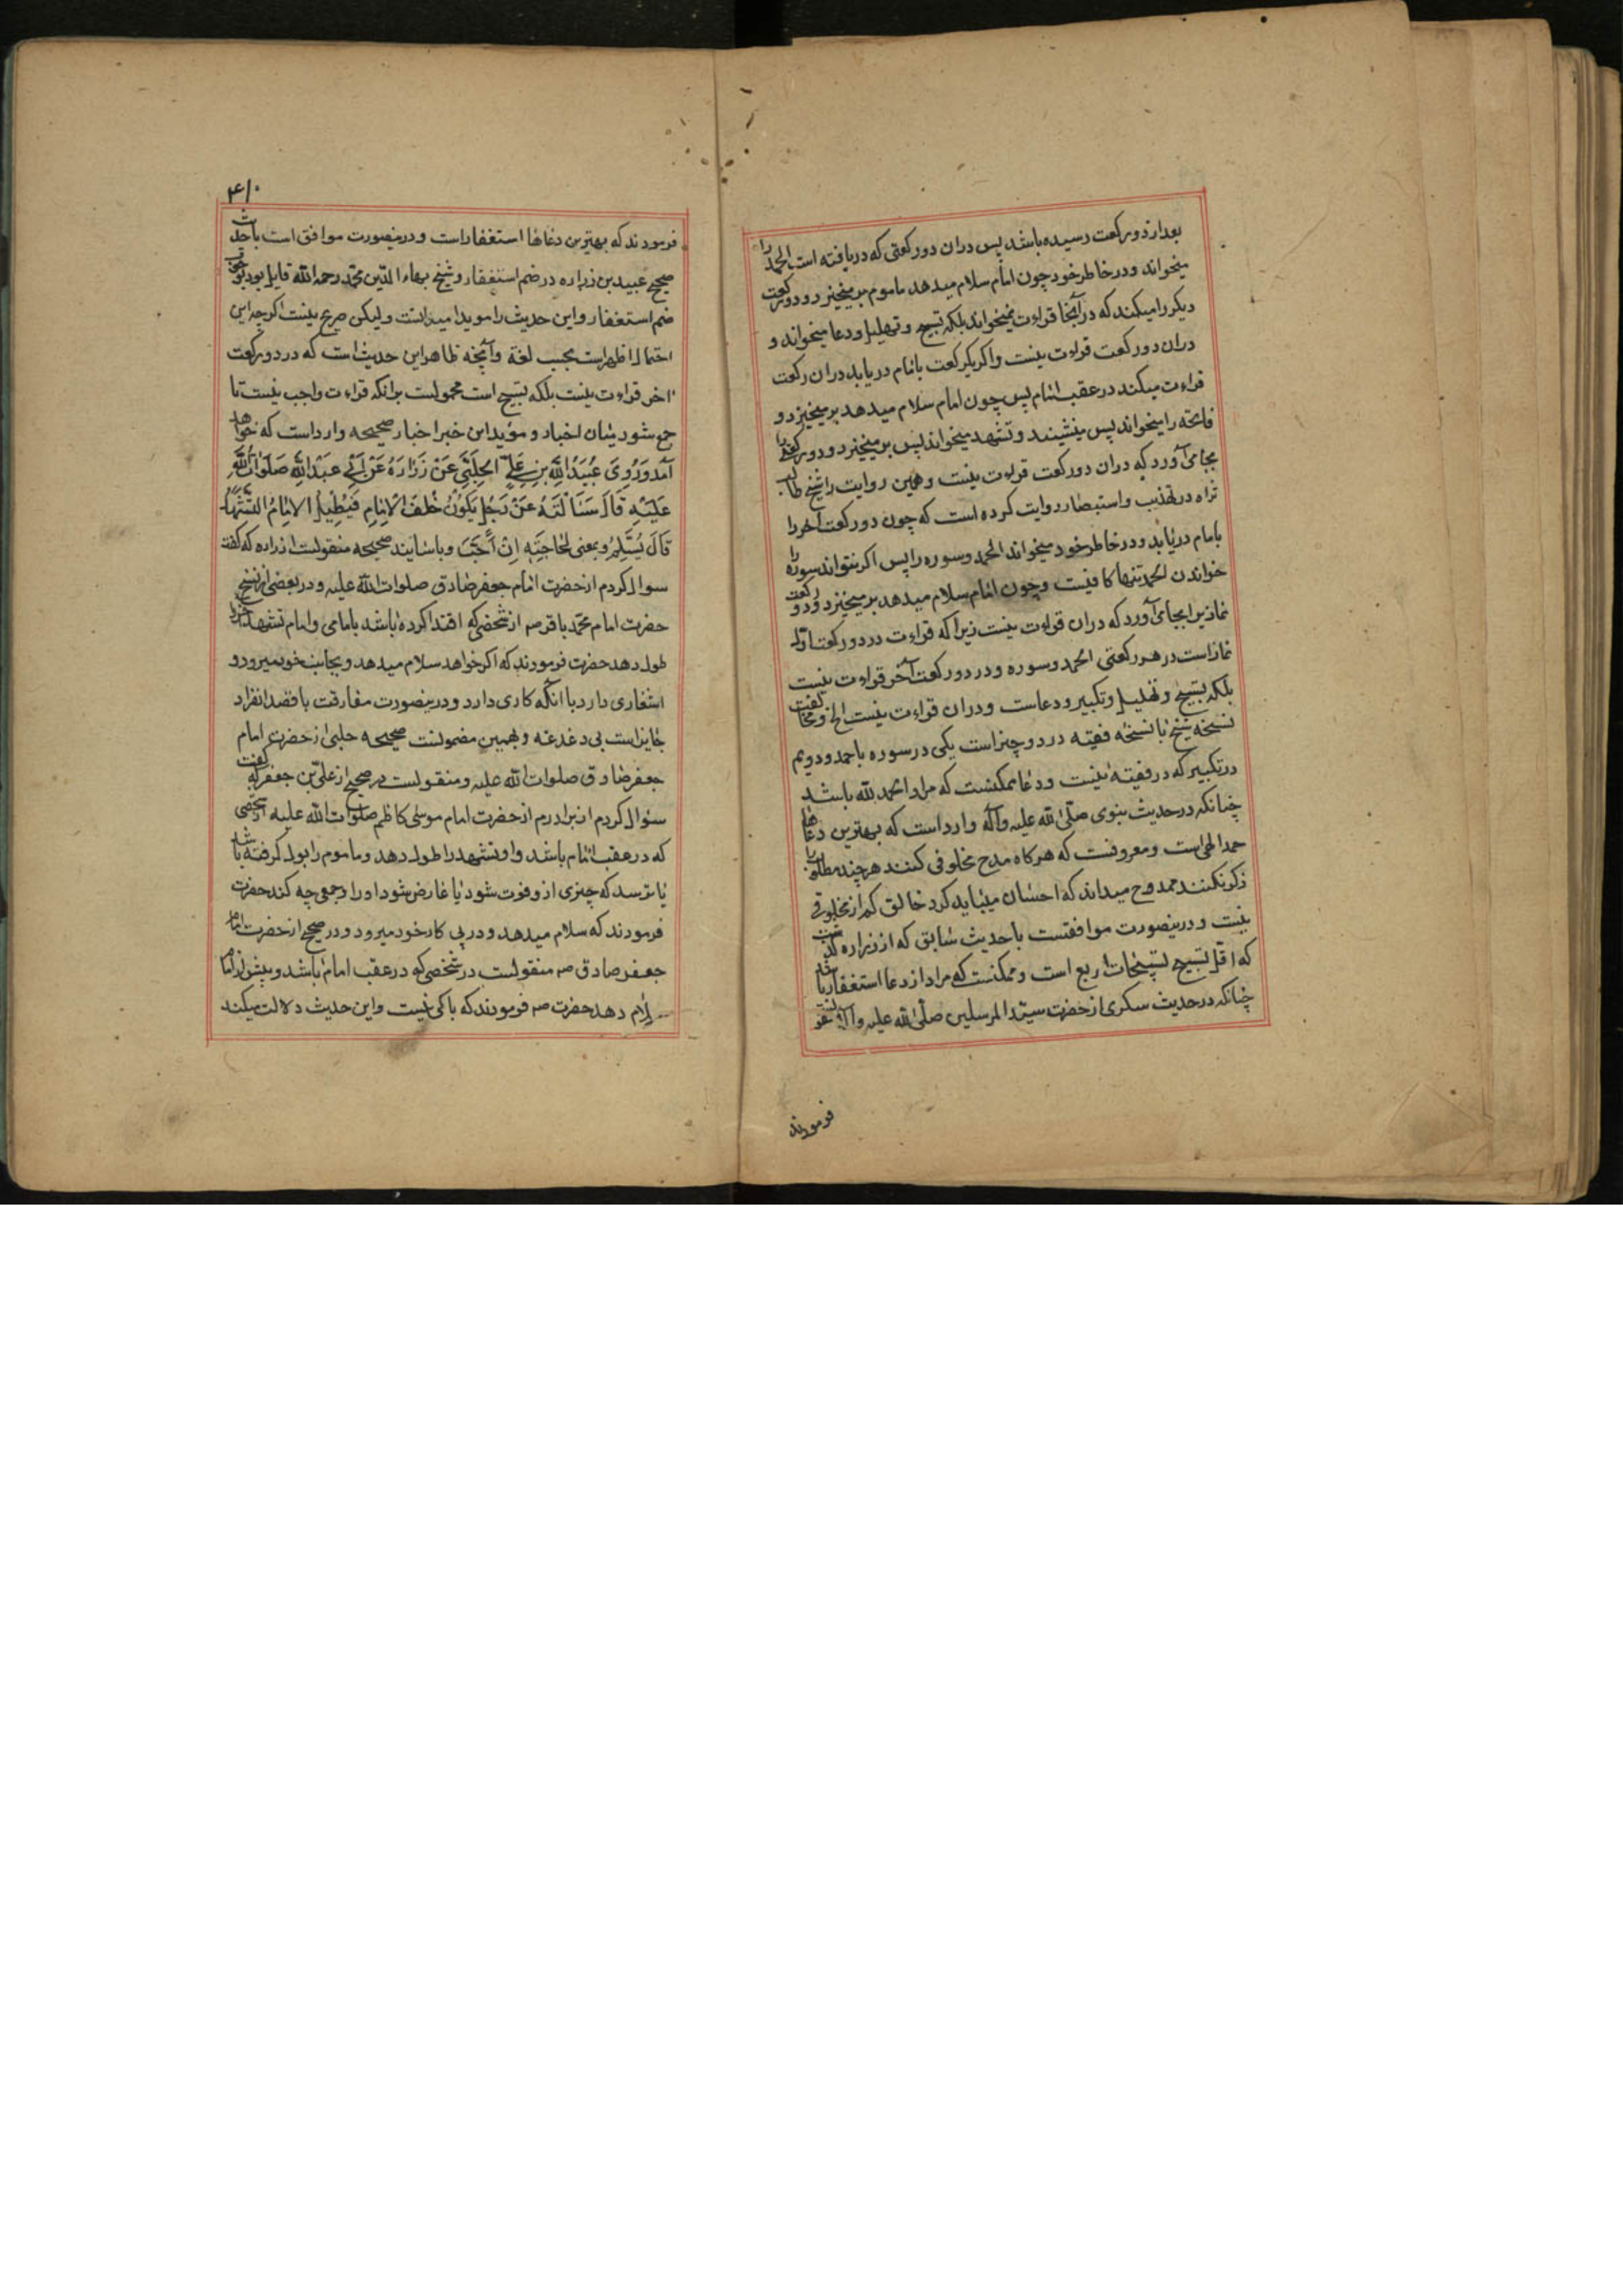 بعد از دو ركعت رسيده باشد پس دران دو ركعتى كه دريافته است الحمد را
ميخواند ودر خاطر خود چون امام سلام ميدهد ماموم برميخيزد ودو ركعت
ديكر را ميكند كه در آنجا قراءت نميخواند بلكه تسبيح وتهليل ودعا ميخواند و
دران دو ركعت قراءت نيست واكر يكركعت با امام دريابد دران ركعت
قراءت ميكند در عقب امام پس چون امام سلام ميدهد برميخيزد و
فاتحه را ميخواند پس مينشيند وتشهد ميخواند پس برميخيزد ودو ركعتى را
بجامى آورد كه دران دو ركعت قراءت نيست وهمين روايت را شيخ طاب
ثراه در تهذيب واستبصار روايت كرده است كه چون دو ركعت آخر را
بامام دريابد ودر خاطر خود ميخواند الحمد وسوره را پس اكر نتواند سوره را
خواندن الحمد تنها كافيست وچون امام سلام ميدهد برميخيزد ودو ركعت
نماز را بجاى آورد كه دران قراءت نيست زيرا كه قراءت در دو ركعت اول
نماز است در هر ركعتى الحمد وسوره ودر دو ركعت آخر قراءت نيست
بلكه تسبيح وتهليل وتكبير ودعاست ودران قراءت نيست الخ ومخالفت
نسخه شيخ با نسخه فقيه در دو چيز است يكى در سوره باحمد ودويم
در تكبير كه در فقيه نيست ودعا ممكنست كه مراد الحمد لله باشد
چنانكه در حديث نبوى صلى الله عليه وآله وارد است كه بهترين دعاها
حمد الهى است ومعروفست كه هركاه مدح مخلوقى كنند هرچند مطلوب را
ذكر نكنند ممدوح ميداند كه احسان ميبايد كرد خالق كم از مخلوقى
نيست ودرينصورت موافقست با حديث سابق كه از زراره كذشت
كه اقل تسبيح تسبيحات اربع است وممكنست كه مراد از دعا استغفار باشد
چنانكه در حديث سكرى از حضرت سيد المرسلين صلى الله عليه وآله
فرمودند
۴۱۰
فرمودند كه بهترين دعاها استغفار است ودرينصورت موافق است با حديث
صحيح عبيد بن زراره در ضم استغفار وشيخ بهاء الدين محمد رحمه الله قايل بود
ضم استغفار واين حديث را مويد ميدانست وليكن صريح نيست اكرچه اين
احتمال اظهر است بحسب لغة وآنچه ظاهر اين حديث است كه در دو ركعت
اخر قراءت نيست بلكه تسبيح است محمولست برانكه قراءت واجب نيست تا
جمع شود ميان اخبار ومؤيد اين خبر اخبار صحيحه وارد است كه خواهد
آمد وَرُوِىَ عُبَيْدُ اللهِ بنِ عَلىٍّ الحَلَبىّ عَنْ زُرَارَهُ عَنْ اَبى عَبْدِ اللهِ صَلَوٰاتُ اللهِ
عَلَيْهِ قَالَ سَئَالْتَهُ عَنْ رَجُلٍ يَكُوْنُ خَلْفَ الْاِمَامِ فَيُطِيْلُ الاِمَامُ التَّشَهُّدَ
قَالَ يُسَلِّمُ ويمضى لحَاجَتِهِ اِنْ اَحَبَّ وباسانيد صحيحه منقولست از زراره كه كفت
سوال كردم از حضرت امام جعفر صادق صلوات الله عليه ودر بعضى از نسخ
حضرت امام محمد باقر صه از شخصى كه اقتدا كرده باشد بامامى وامام تشهد را
طول دهد حضرت فرمودند كه اكر خواهد سلام ميدهد وبجانب خود ميرود و
اشعارى دارد با انكه كارى دارد ودرينصورت مفارقت با قصد انفراد
جايز است بى دغدغه وبهمين مضمونست صحيحه حلبى از حضرت امام
جعفر صادق صلوات الله عليه ومنقولست در صحيح از على بن جعفر كه كفت
سئوال كردم از برادرم از حضرت امام موسى كاظم صلوات الله عليه از شخصى
كه در عقب امام باشد واو تشهد را طول دهد وماموم را بول كرفته باشد
يا ترسد كه چيزى ازو فوت شود يا عارض شود او را وجعى چه كند حضرت
فرمودند كه سلام ميدهد ودر پى كار خود ميرود ودر صحيح از حضرت امام
جعفر صادق صه منقولست در شخصى كه در عقب امام باشد وپيش از امام
سلام دهد حضرت صه فرمودند كه باكى نيست واين حديث دلالت ميكند